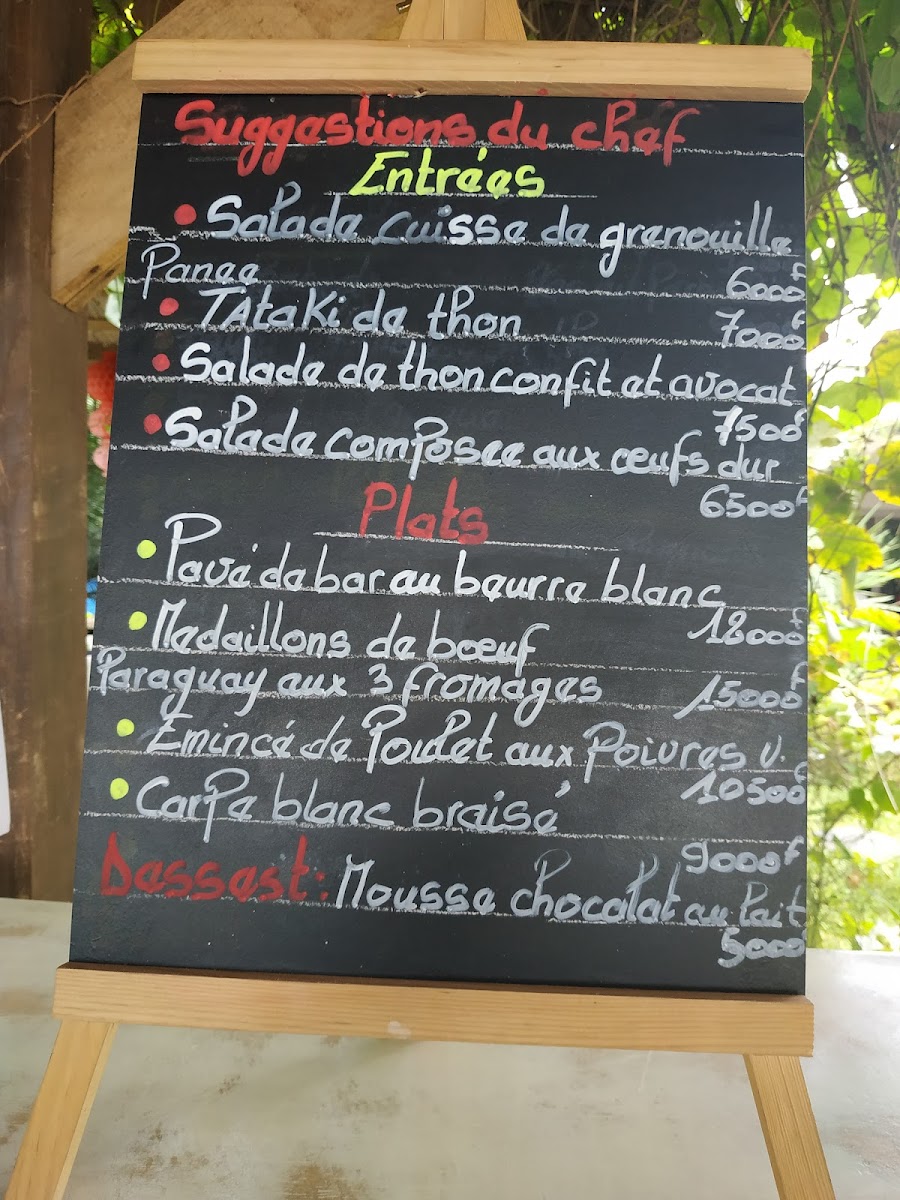 Suggestions du chef
Entrées
• Salade cuisse de grenouille
Panee 6000F
• TátaKi de thon 7000F
• Salade de thon confit et avocat
7500F
• Salade composee aux œufs dur
6500F
Plats
• Pavé de bar au beurre blanc
12000F
• Medaillons de boeuf
Paraguay aux 3 fromages 15000F
• Emincé de Poulet aux Poivres v.
10500F
• Carpe blanc braisé
9000F
Dessest: Mousse chocolat au lait
5000